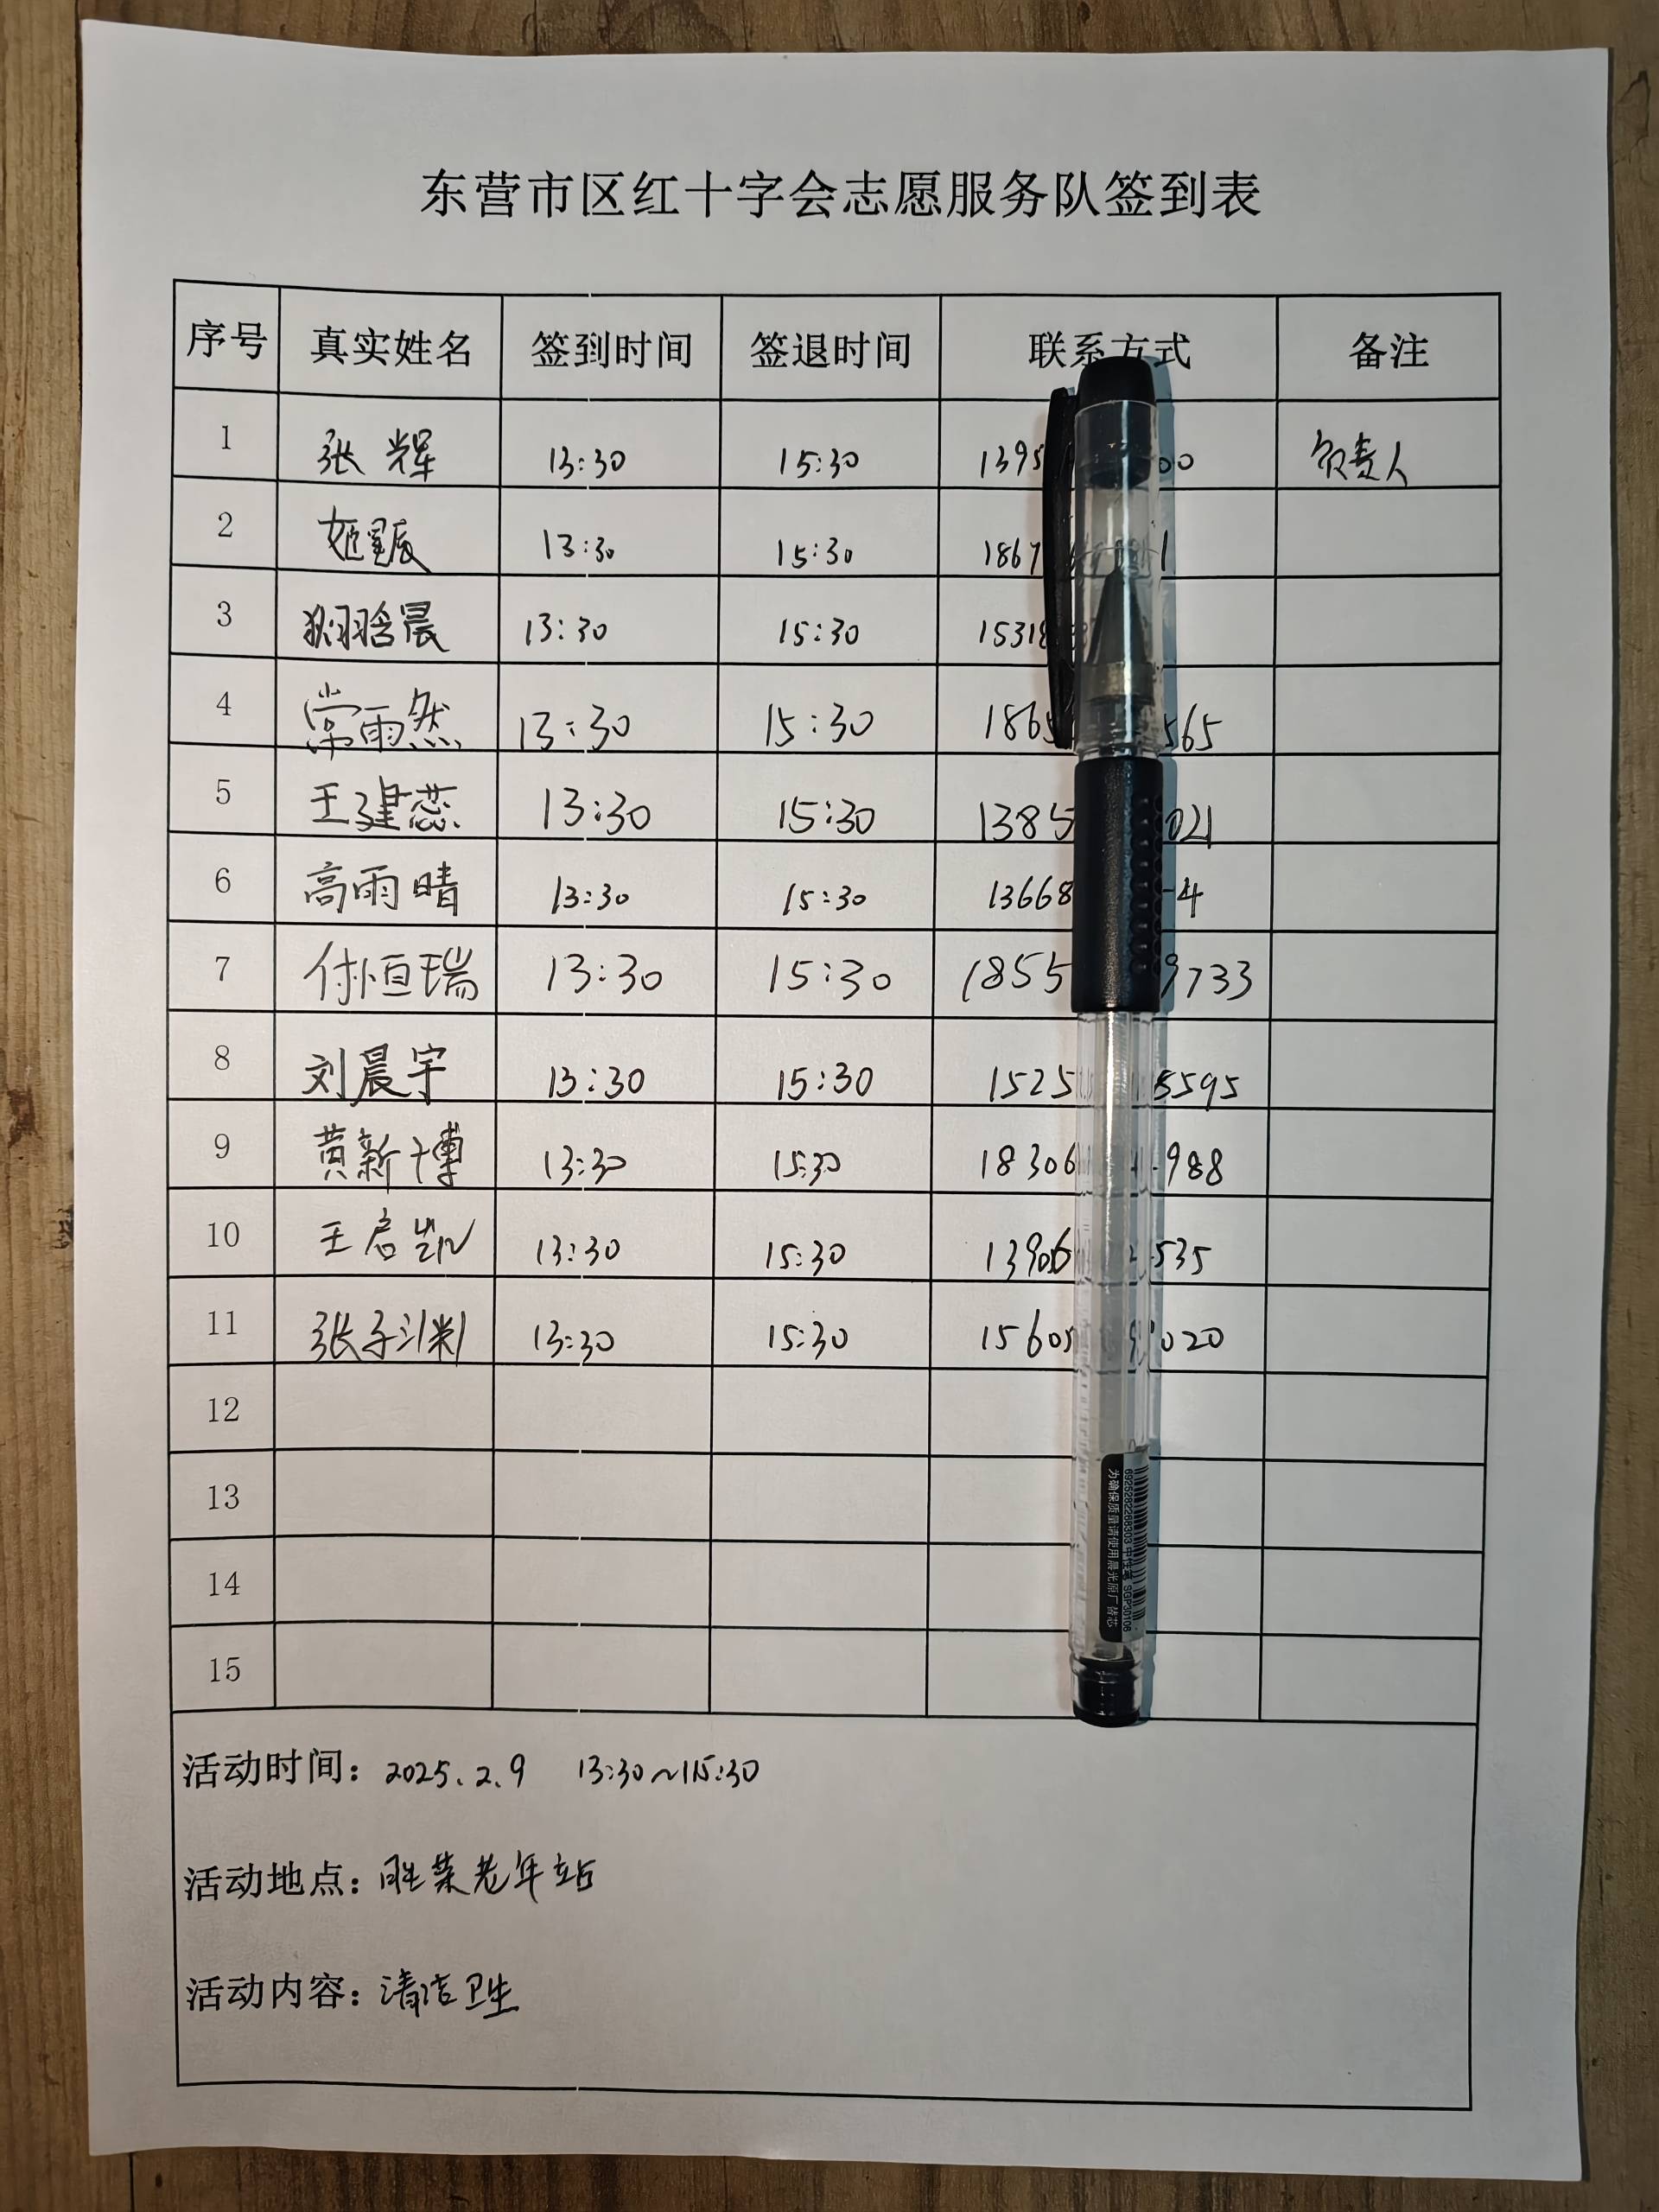 东营市区红十字会志愿服务队签到表
序号 真实姓名 签到时间 签退时间 联系方式 备注
1 张辉 13:30 15:30 1395 00 负责人
2 姬星辰 13:30 15:30 1867 1
3 13:30 15:30 15318
4 常雨然 13:30 15:30 1865 565
5 王建蕊 13:30 15:30 1385 021
6 高雨晴 13:30 15:30 13668 4
7 付恒瑞 13:30 15:30 1855 9733
8 刘晨宇 13:30 15:30 1525 5595
9 黄新博 13:30 15:30 18306 988
10 王启凯 13:30 15:30 13906 535
11 张子渊 13:30 15:30 15605 020
12
13
14
15
活动时间: 2025.2.9 13:30~15:30
活动地点: 胜采老年站
活动内容: 清洁卫生
6925282288303 中性笔 SGP30106
为确保质量请使用晨光原厂替芯